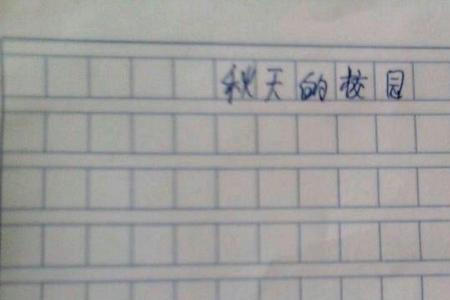 秋天的校园